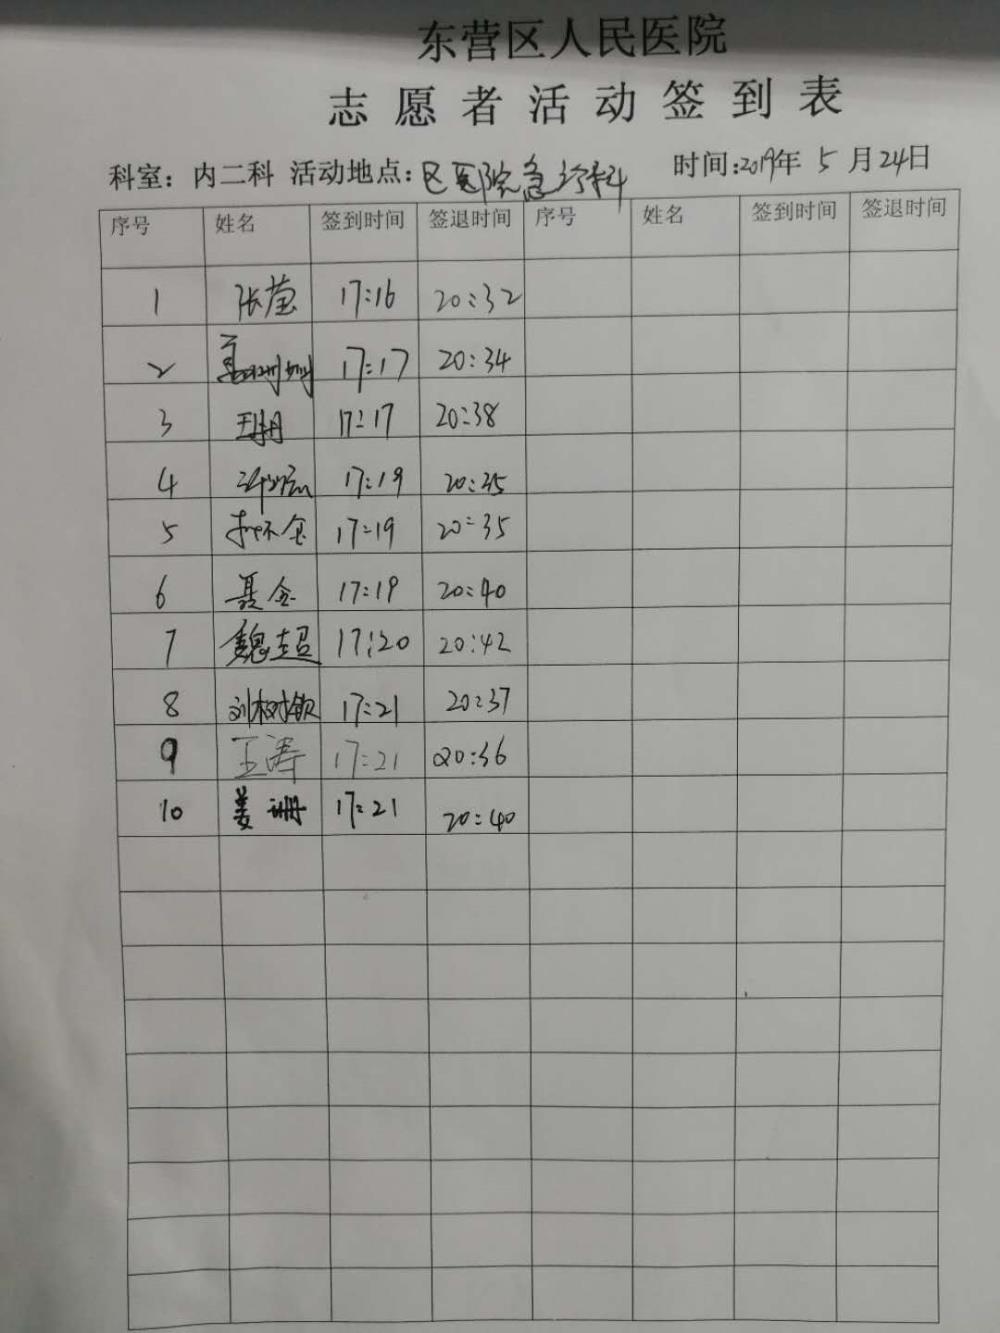 东营区人民医院
志愿者活动签到表
科室：内二科 活动地点：区医院急诊科 时间：2019年5月24日
序号 姓名 签到时间 签退时间 序号 姓名 签到时间 签退时间
1 张莹 17:16 20:32
2 17:17 20:34
3 17:17 20:38
4 17:19 20:35
5 17:19 20:35
6 聂金 17:19 20:40
7 魏超 17:20 20:42
8 刘树钦 17:21 20:37
9 王涛 17:21 20:36
10 姜珊 17:21 20:40